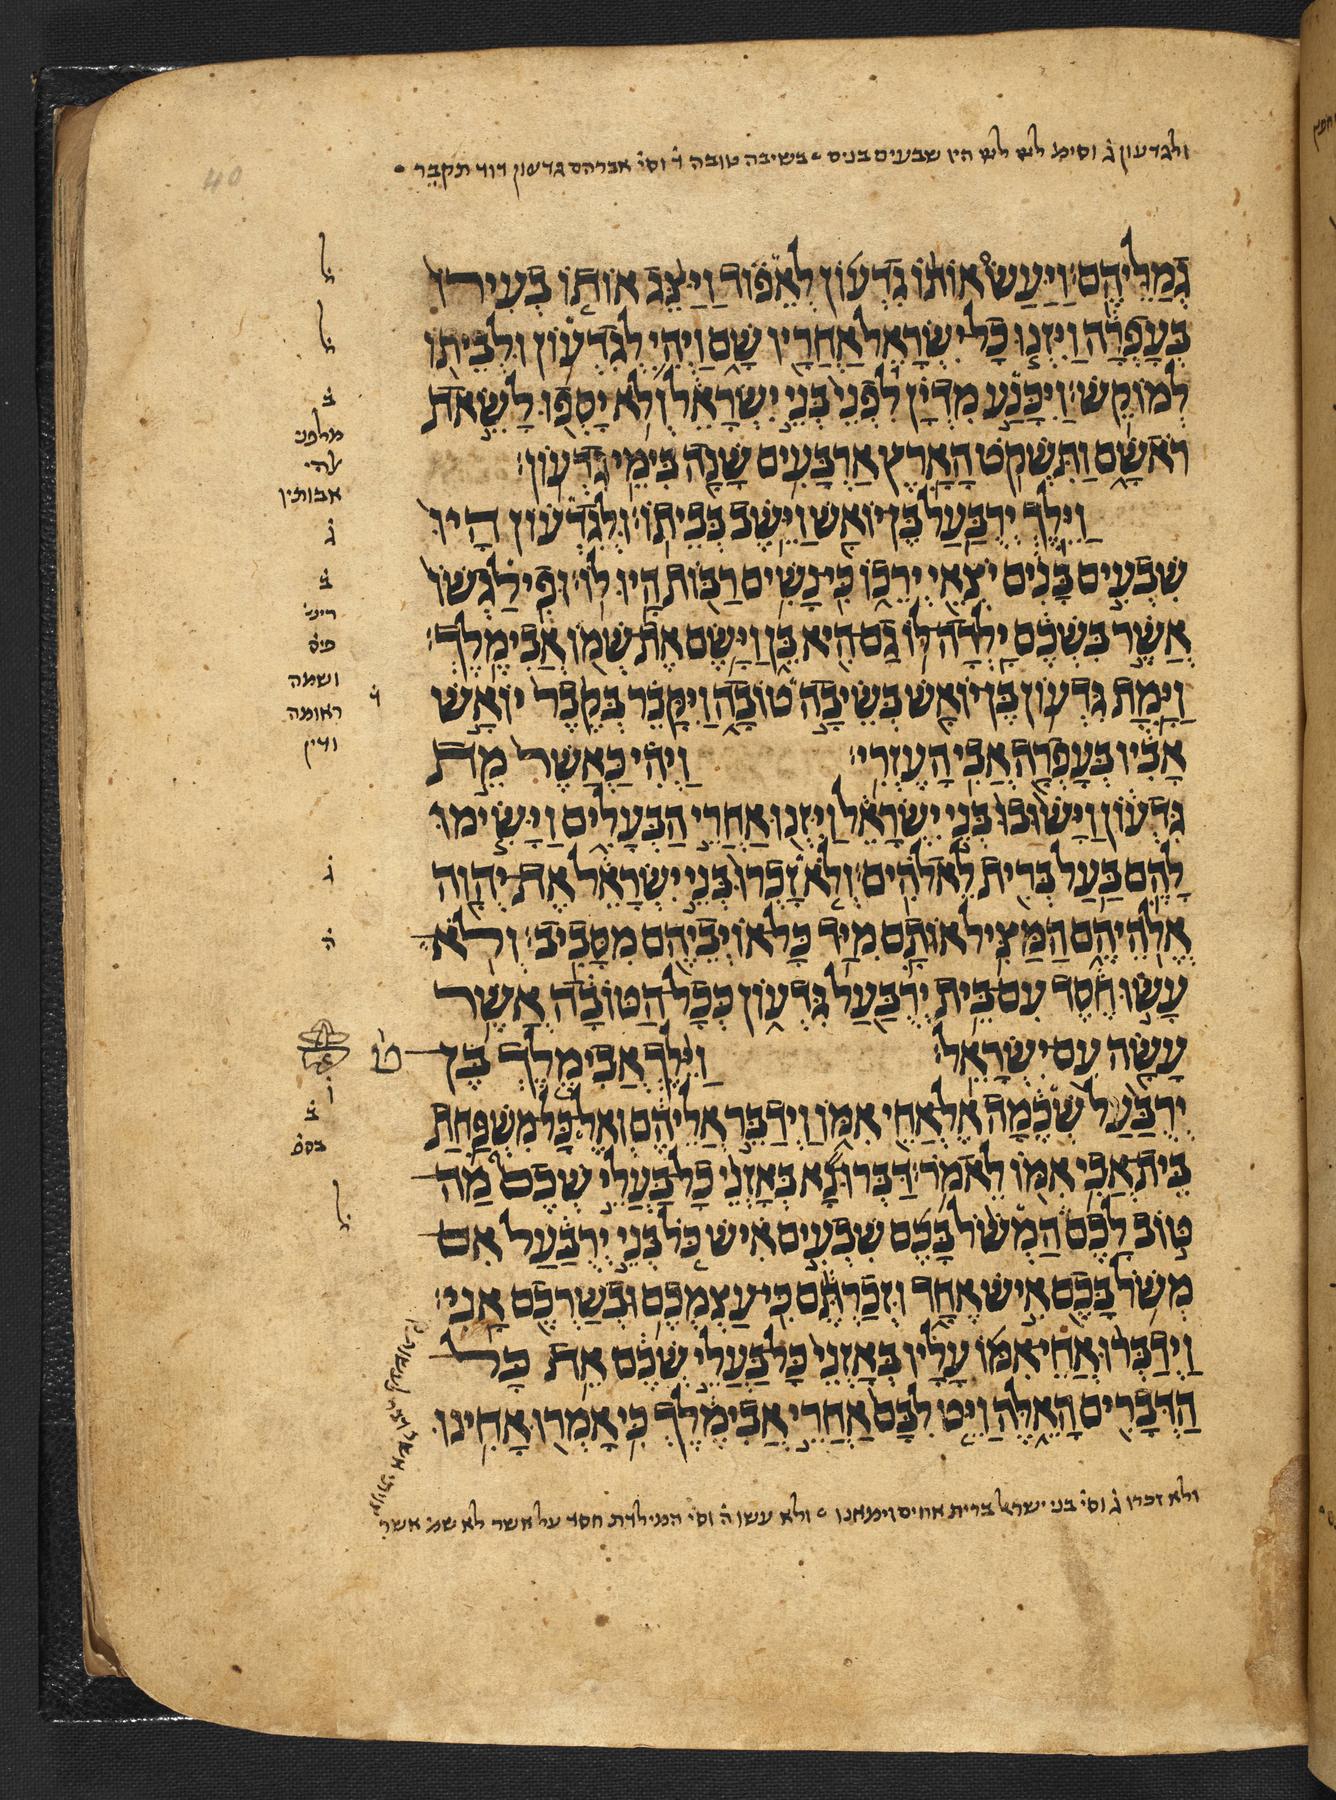 ולגדעון ג֗ וסימ֗ היו שבעים בנים ׃ בשיבה טובה ד֗ וסי֗ אברהם גדעון דויד תקבר
גְמַלֵּיהֶֽם׃ וַיַּעַשׂ אוֹתוֹ גִדְעוֹן לְאֵפוֹד וַיַּצֵּג אוֹתוֹ בְעִירוֹ
בְּעָפְרָה וַיִּזְנוּ כָל יִשְׂרָאֵל אַחֲרָיו שָׁם וַיְהִי לְגִדְעוֹן וּלְבֵיתוֹ
לְמוֹקֵשׁ׃ וַיִּכָּנַע מִדְיָן לִפְנֵי בְּנֵי יִשְׂרָאֵל וְלֹא יָסְפוּ לָשֵׂאת
רֹאשָׁם וַתִּשְׁקֹט הָאָרֶץ אַרְבָּעִים שָׁנָה בִּימֵי גִדְעוֹן׃
וַיֵּלֶךְ יְרֻבַּעַל בֶּן יוֹאָשׁ וַיֵּשֶׁב בְּבֵיתוֹ׃ וּלְגִדְעוֹן הָיוּ
שִׁבְעִים בָּנִים יֹצְאֵי יְרֵכוֹ כִּי נָשִׁים רַבּוֹת הָיוּ לוֹ׃ וּפִילַגְשׁוֹ
אֲשֶׁר בִּשְׁכֶם יָלְדָה לּוֹ גַם הִיא בֵּן וַיָּשֶׂם אֶת שְׁמוֹ אֲבִימֶלֶךְ׃
וַיָּמָת גִּדְעוֹן בֶּן יוֹאָשׁ בְּשֵׂיבָה טוֹבָה וַיִּקָּבֵר בְּקֶבֶר יוֹאָשׁ
אָבִיו בְּעָפְרָה אֲבִי הָעֶזְרִי׃ וַיְהִי כַּאֲשֶׁר מֵת
גִּדְעוֹן וַיָּשׁוּבוּ בְּנֵי יִשְׂרָאֵל וַיִּזְנוּ אַחֲרֵי הַבְּעָלִים וַיָּשִׂימוּ
לָהֶם בַּעַל בְּרִית לֵאלֹהִים׃ וְלֹא זָכְרוּ בְּנֵי יִשְׂרָאֵל אֶת יְהוָה
אֱלֹהֵיהֶם הַמַּצִּיל אוֹתָם מִיַּד כָּל אוֹיְבֵיהֶם מִסָּבִיב׃ וְלֹא
עָשׂוּ חֶסֶד עִם בֵּית יְרֻבַּעַל גִּדְעוֹן כְּכָל הַטּוֹבָה אֲשֶׁר
עָשָׂה עִם יִשְׂרָאֵל׃ וַיֵּלֶךְ אֲבִימֶלֶךְ בֶּן ט֗
יְרֻבַּעַל שְׁכֶמָה אֶל אֲחֵי אִמּוֹ וַיְדַבֵּר אֲלֵיהֶם וְאֶל כָּל מִשְׁפַּחַת
בֵּית אֲבִי אִמּוֹ לֵאמֹר׃ דַּבְּרוּ נָא בְּאָזְנֵי כָל בַּעֲלֵי שְׁכֶם מַה
טּוֹב לָכֶם הַמְשֹׁל בָּכֶם שִׁבְעִים אִישׁ כֹּל בְּנֵי יְרֻבַּעַל אִם
מְשֹׁל בָּכֶם אִישׁ אֶחָד וּזְכַרְתֶּם כִּי עַצְמְכֶם וּבְשַׂרְכֶם אָנִי׃
וַיְדַבְּרוּ אֲחֵי אִמּוֹ עָלָיו בְּאָזְנֵי כָּל בַּעֲלֵי שְׁכֶם אֵת כָּל
הַדְּבָרִים הָאֵלֶּה וַיֵּט לִבָּם אַחֲרֵי אֲבִימֶלֶךְ כִּי אָמְרוּ אָחִינוּ
ולא זכרו ג֗ וסי֗ בני ישראל ברית אחים וימאנו ׃ ולא עשו ה֗ וסי֗ המילדת חסד על אשר לא שמ֗ אשר
ל֗
ל֗
ב֗
מלפני
אבותין
ג֗
ב֗
ושמה
ראומה
ודין
ג֗
ה֗
ב֗
בפס֗
ל֗
40